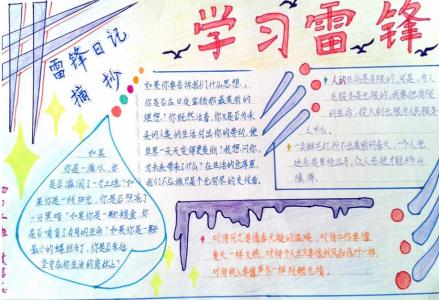 学习雷锋
雷锋日记
摘抄
如果
你是一滴水,你
是否滋润了一寸土地?如
果你是一线阳光,你是否照亮了
一分黑暗?如果你是一颗粮食,你
是否哺育了有用的生命?如果你是一颗
最小的螺丝钉,你是否永远
坚守在你生活的岗位上?
如果你要告诉我们什么思想,
你是否在日夜宣扬那最美丽的
理想?你既然活着,你又是否为未
来的人类的生活付出你的劳动,使
世界一天天变得更美丽?我想问你,
为未来带来了什么?在生活的仓库里,
我们不应该只是个无穷尽的支付者。
人的生命是有限的,可是,为人
民服务是无限的,我要把有限
的生命,投入到无限为人民服务
之中去。
一朵鲜花打扮不出美丽的春天,一个人先
进总是单枪匹马,众人先进才能移山
填海。
对待同志要像春天般的温暖,对待工作要像
夏天一样火热,对待个人主义要像秋风扫落叶一样,
对待敌人要像严冬一样残酷无情。